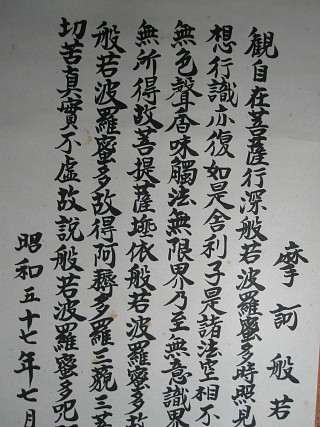 摩訶般若
観自在菩薩行深般若波羅蜜多時照見
想行識亦復如是舍利子是諸法空相不
無色聲香味觸法無限界乃至無意識界
無所得故菩提薩埵依般若波羅蜜多故
般若波羅蜜多故得阿耨多羅三藐三菩
切苦真實不虚故説般若波羅蜜多呪
昭和五十七年七月